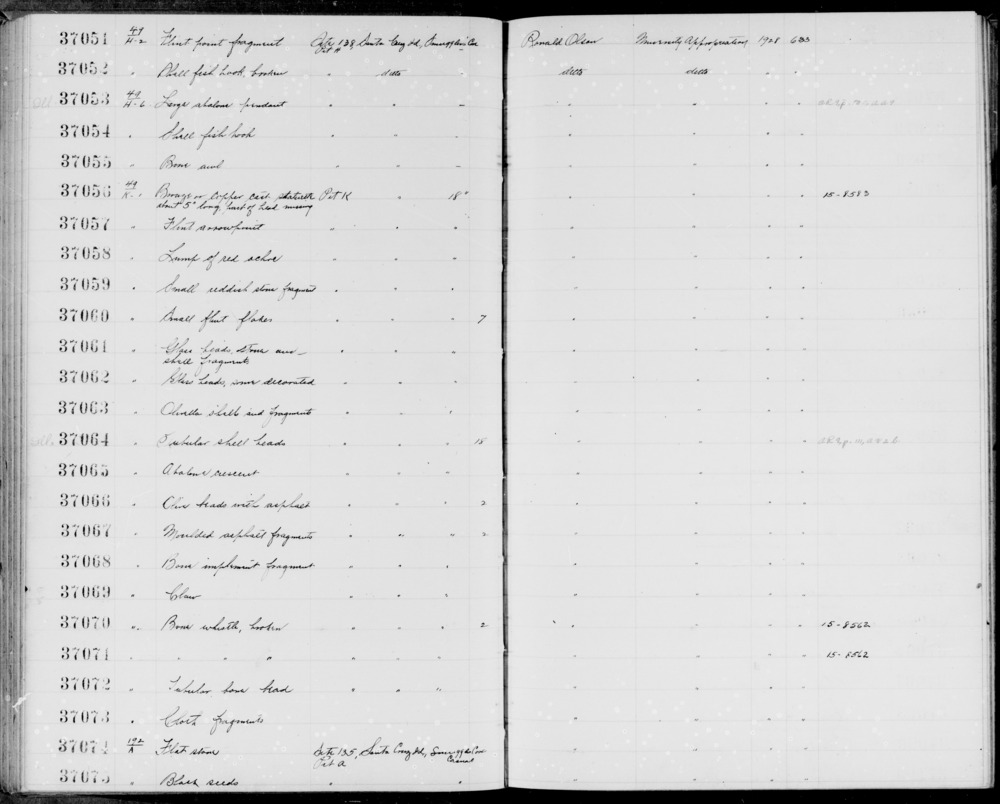 37051 49/H-2 Flint point fragment Site 138, Santa Cruz Isl, Smugglers Cove Ronald Olson University Appropriation 1928 633
Pit H
37052 " Shell fish hook, broken " ditto " ditto ditto " "
37053 49/H-6 Large abalone pendant " " - " " " "
37054 " Shell fish hook " " " " " " "
37055 " Bone awl " " - " " " "
37056 49/K- " Bronze or Copper cast statuette Pit K " 18" " " " " 15-8583
about 5" long, part of head missing
37057 " Flint arrowpoint " " " " " " "
37058 " Lump of red ochre " " " " " " "
37059 " Small reddish stone fragment " " " " " " "
37060 " Small flint flakes " " " 7 " " " "
37061 " Glass beads, stone and " " " " " " "
shell fragments
37062 " Glass beads, some decorated " " " " " " "
37063 " Olivella shells and fragments " " " " " " "
37064 " Tubular shell beads " " " 18 " " " "
37065 " Abalone crescent " " " " " " "
37066 " Olive beads with asphalt " " " 2 " " " "
37067 " Moulded asphalt fragments " " " 2 " " " "
37068 " Bone implement fragment " " " " " " "
37069 " Claw " " " " " " "
37070 " Bone whistle, broken " " " 2 " " " " 15-8562
37071 " " " " " " " " 15-8562
37072 " Tubular bone bead " " " " " " "
37073 " Cloth fragments " " " "
37074 192/A Flat stone Site 135, Santa Cruz Isl, Smugglers Cove " " " "
Pit A
37075 " Black seeds " " " " " "